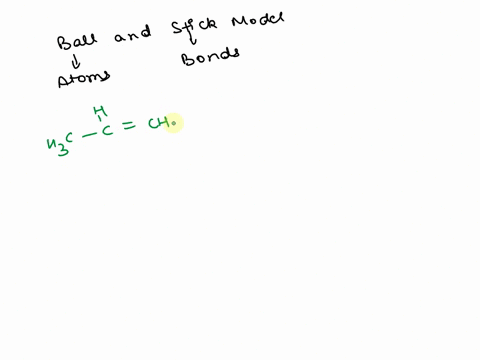 Ball and Stick Model
Atoms Bonds
H
H3C - C = CH